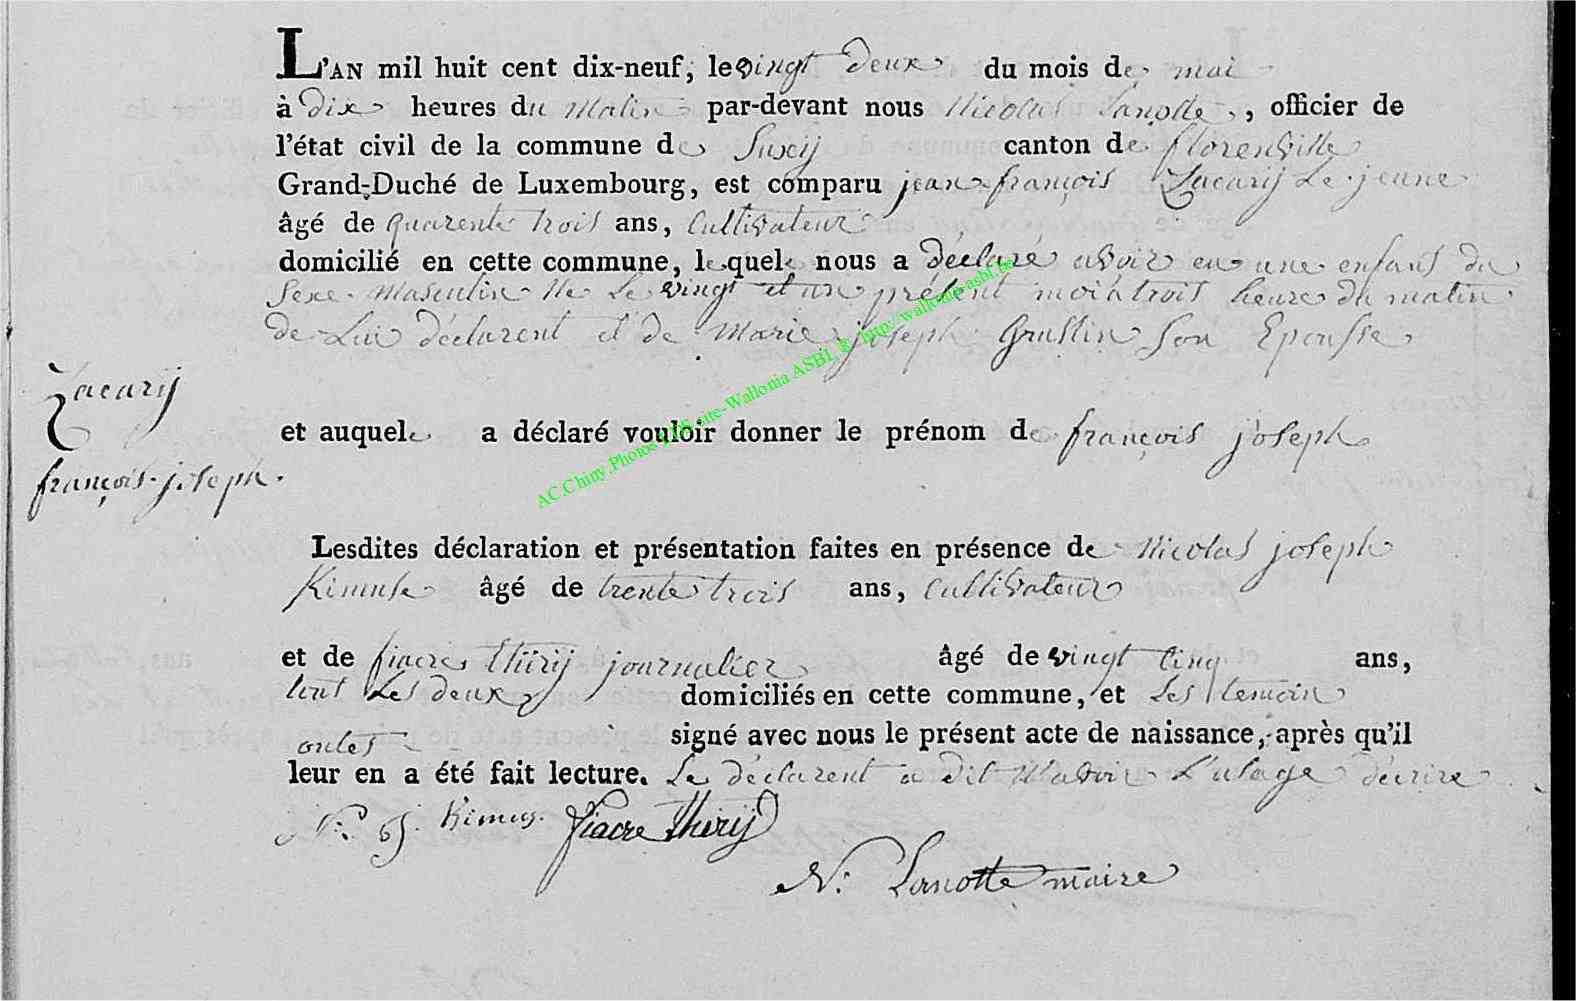 L'AN mil huit cent dix-neuf, le vingt deux du mois de mai
à dix heures du matin par-devant nous Nicolas Lanotte, officier de
l'état civil de la commune de Suxij canton de florenville
Grand-Duché de Luxembourg, est comparu jean françois Zacarij Le jeune
âgé de quarente trois ans, Cultivateur
domicilié en cette commune, lequel nous a déclaré avoir eu une enfant du
Sexe Masculin Ne Le vingt et un présent mois a trois heure du matin
de Lui déclarent et de Marie joseph Gruslin Son Epousse
Zacarij
et auquel a déclaré vouloir donner le prénom de françois joseph
françois-joseph.
AC.Chiny.Photos Luxite-Wallonia ASBL & http://wallonia-asbl.be
Lesdites déclaration et présentation faites en présence de Nicolas joseph
Kimus âgé de trente trois ans, Cultivateur
et de fiacre thirij journalier âgé de vingt cinq ans,
tous Les deux domiciliés en cette commune, et Les temoin
ontes signé avec nous le présent acte de naissance, après qu'il
leur en a été fait lecture. Le déclarent a dit Navoir L'usage décrire
N: j. Kimus. fiacre thirij
N: Lanotte maire